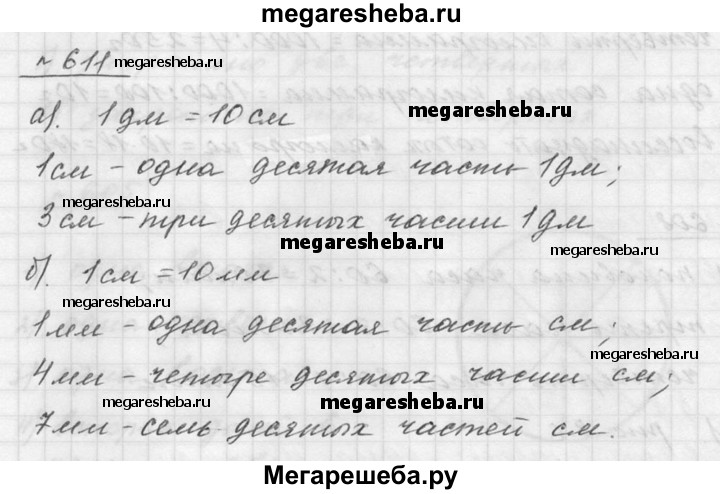 megaresheba.ru
№ 611 megaresheba.ru
а). 1дм = 10см megaresheba.ru
megaresheba.ru
1см – одна десятая часть 1дм;
3см – три десятых части 1дм
megaresheba.ru
б). 1см = 10мм
megaresheba.ru
1мм – одна десятая часть см;
megaresheba.ru
4мм – четыре десятых части см;
megaresheba.ru megaresheba.ru
7мм – семь десятых частей см.
Мегарешеба.ру